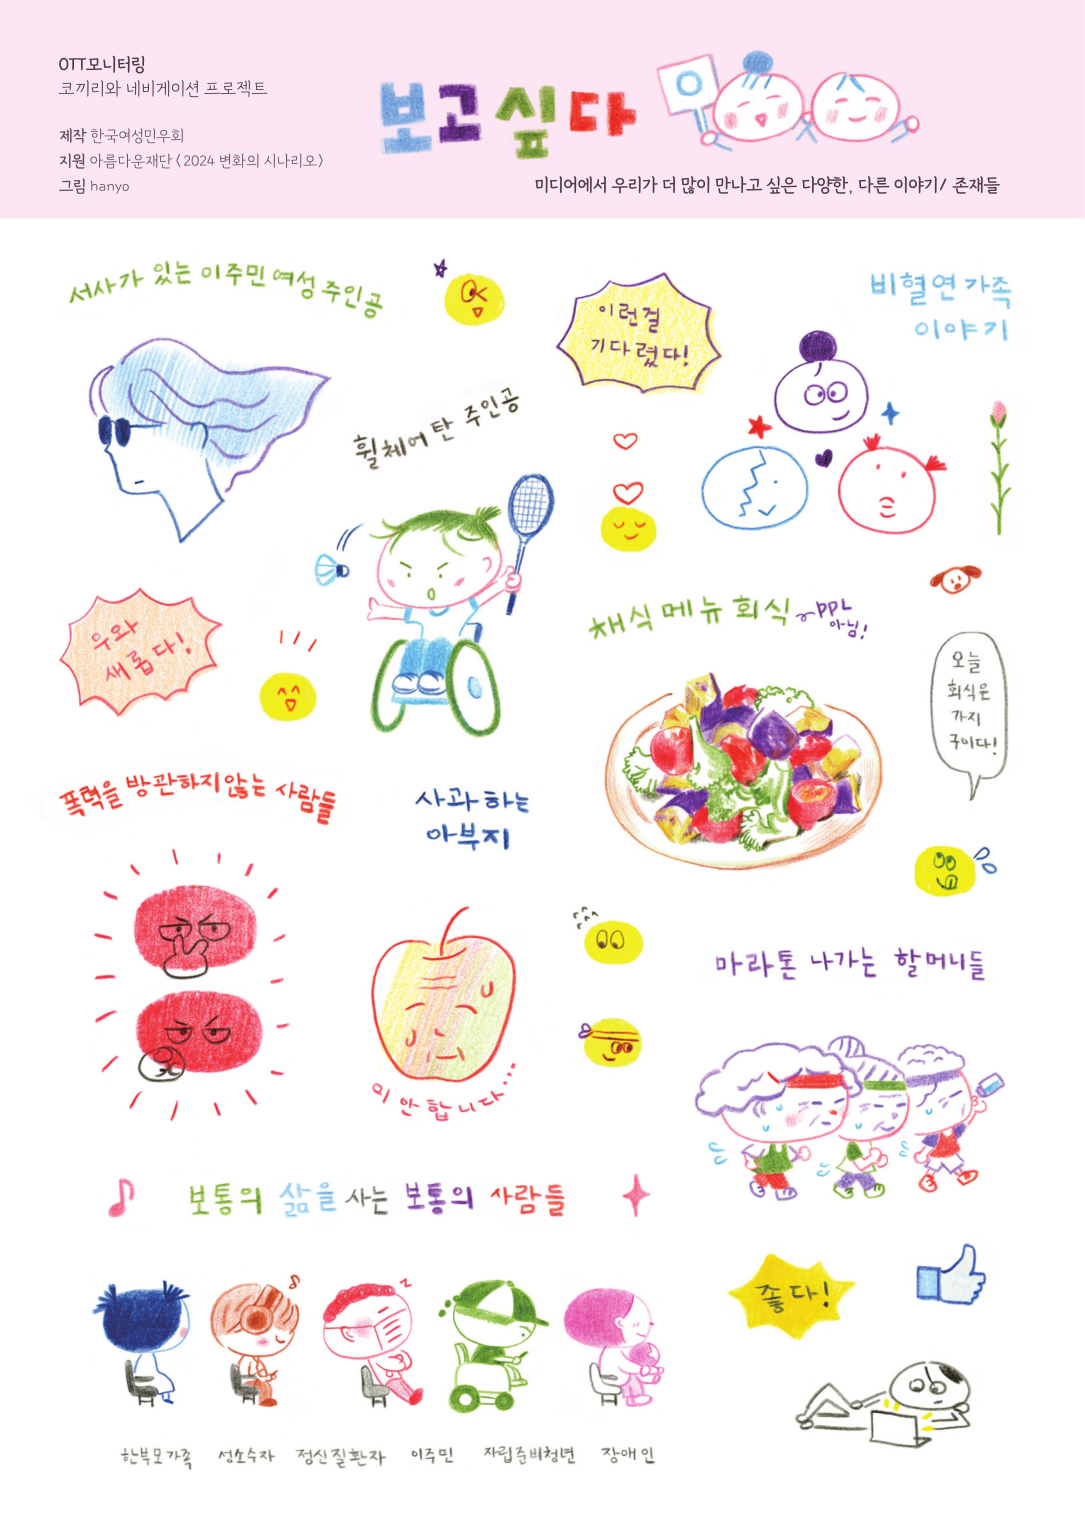 OTT모니터링
코끼리와 네비게이션 프로젝트
제작 한국여성민우회
지원 아름다운재단 <2024 변화의 시나리오>
그림 hanyo
보고싶다
미디어에서 우리가 더 많이 만나고 싶은 다양한, 다른 이야기/ 존재들
서사가 있는 이주민 여성 주인공
이런걸
기다렸다!
비혈연 가족
이야기
휠체어 탄 주인공
우와
새롭다!
채식 메뉴 회식
PPL
아님!
오늘
회식은
가지
구이다!
폭력을 방관하지 않는 사람들
사과 하는
아부지
미안합니다...
마라톤 나가는 할머니들
보통의 삶을 사는 보통의 사람들
좋다!
한부모가족 성소수자 정신질환자 이주민 자립준비청년 장애인